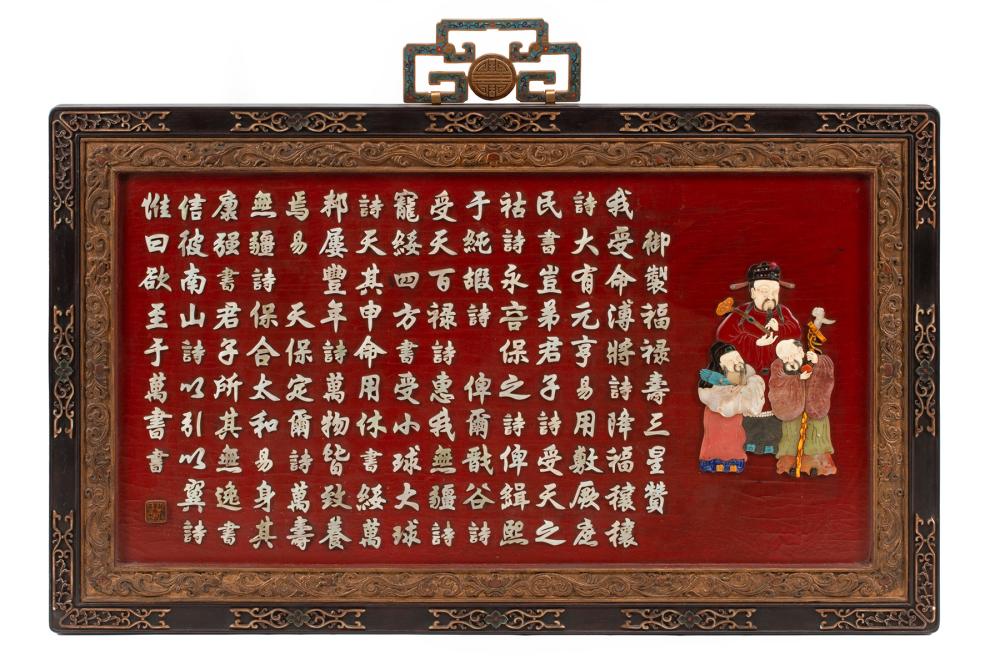 御製福禄壽三星贊
我受命溥將詩降福穰穰
詩大有元亨易用敷厥庶
民書豈弟君子詩受天之
祜詩永言保之詩俾緝熙
于純嘏詩俾爾戩谷詩
受天百禄詩惠我無疆詩
寵綏四方書受小球大球
詩天其申命用休書綏萬
邦屢豐年詩萬物皆致養
焉易 天保定爾詩萬壽
無疆詩保合太和易身其
康强書君子所其無逸書
信彼南山詩以引以翼詩
惟曰欲至于萬書書